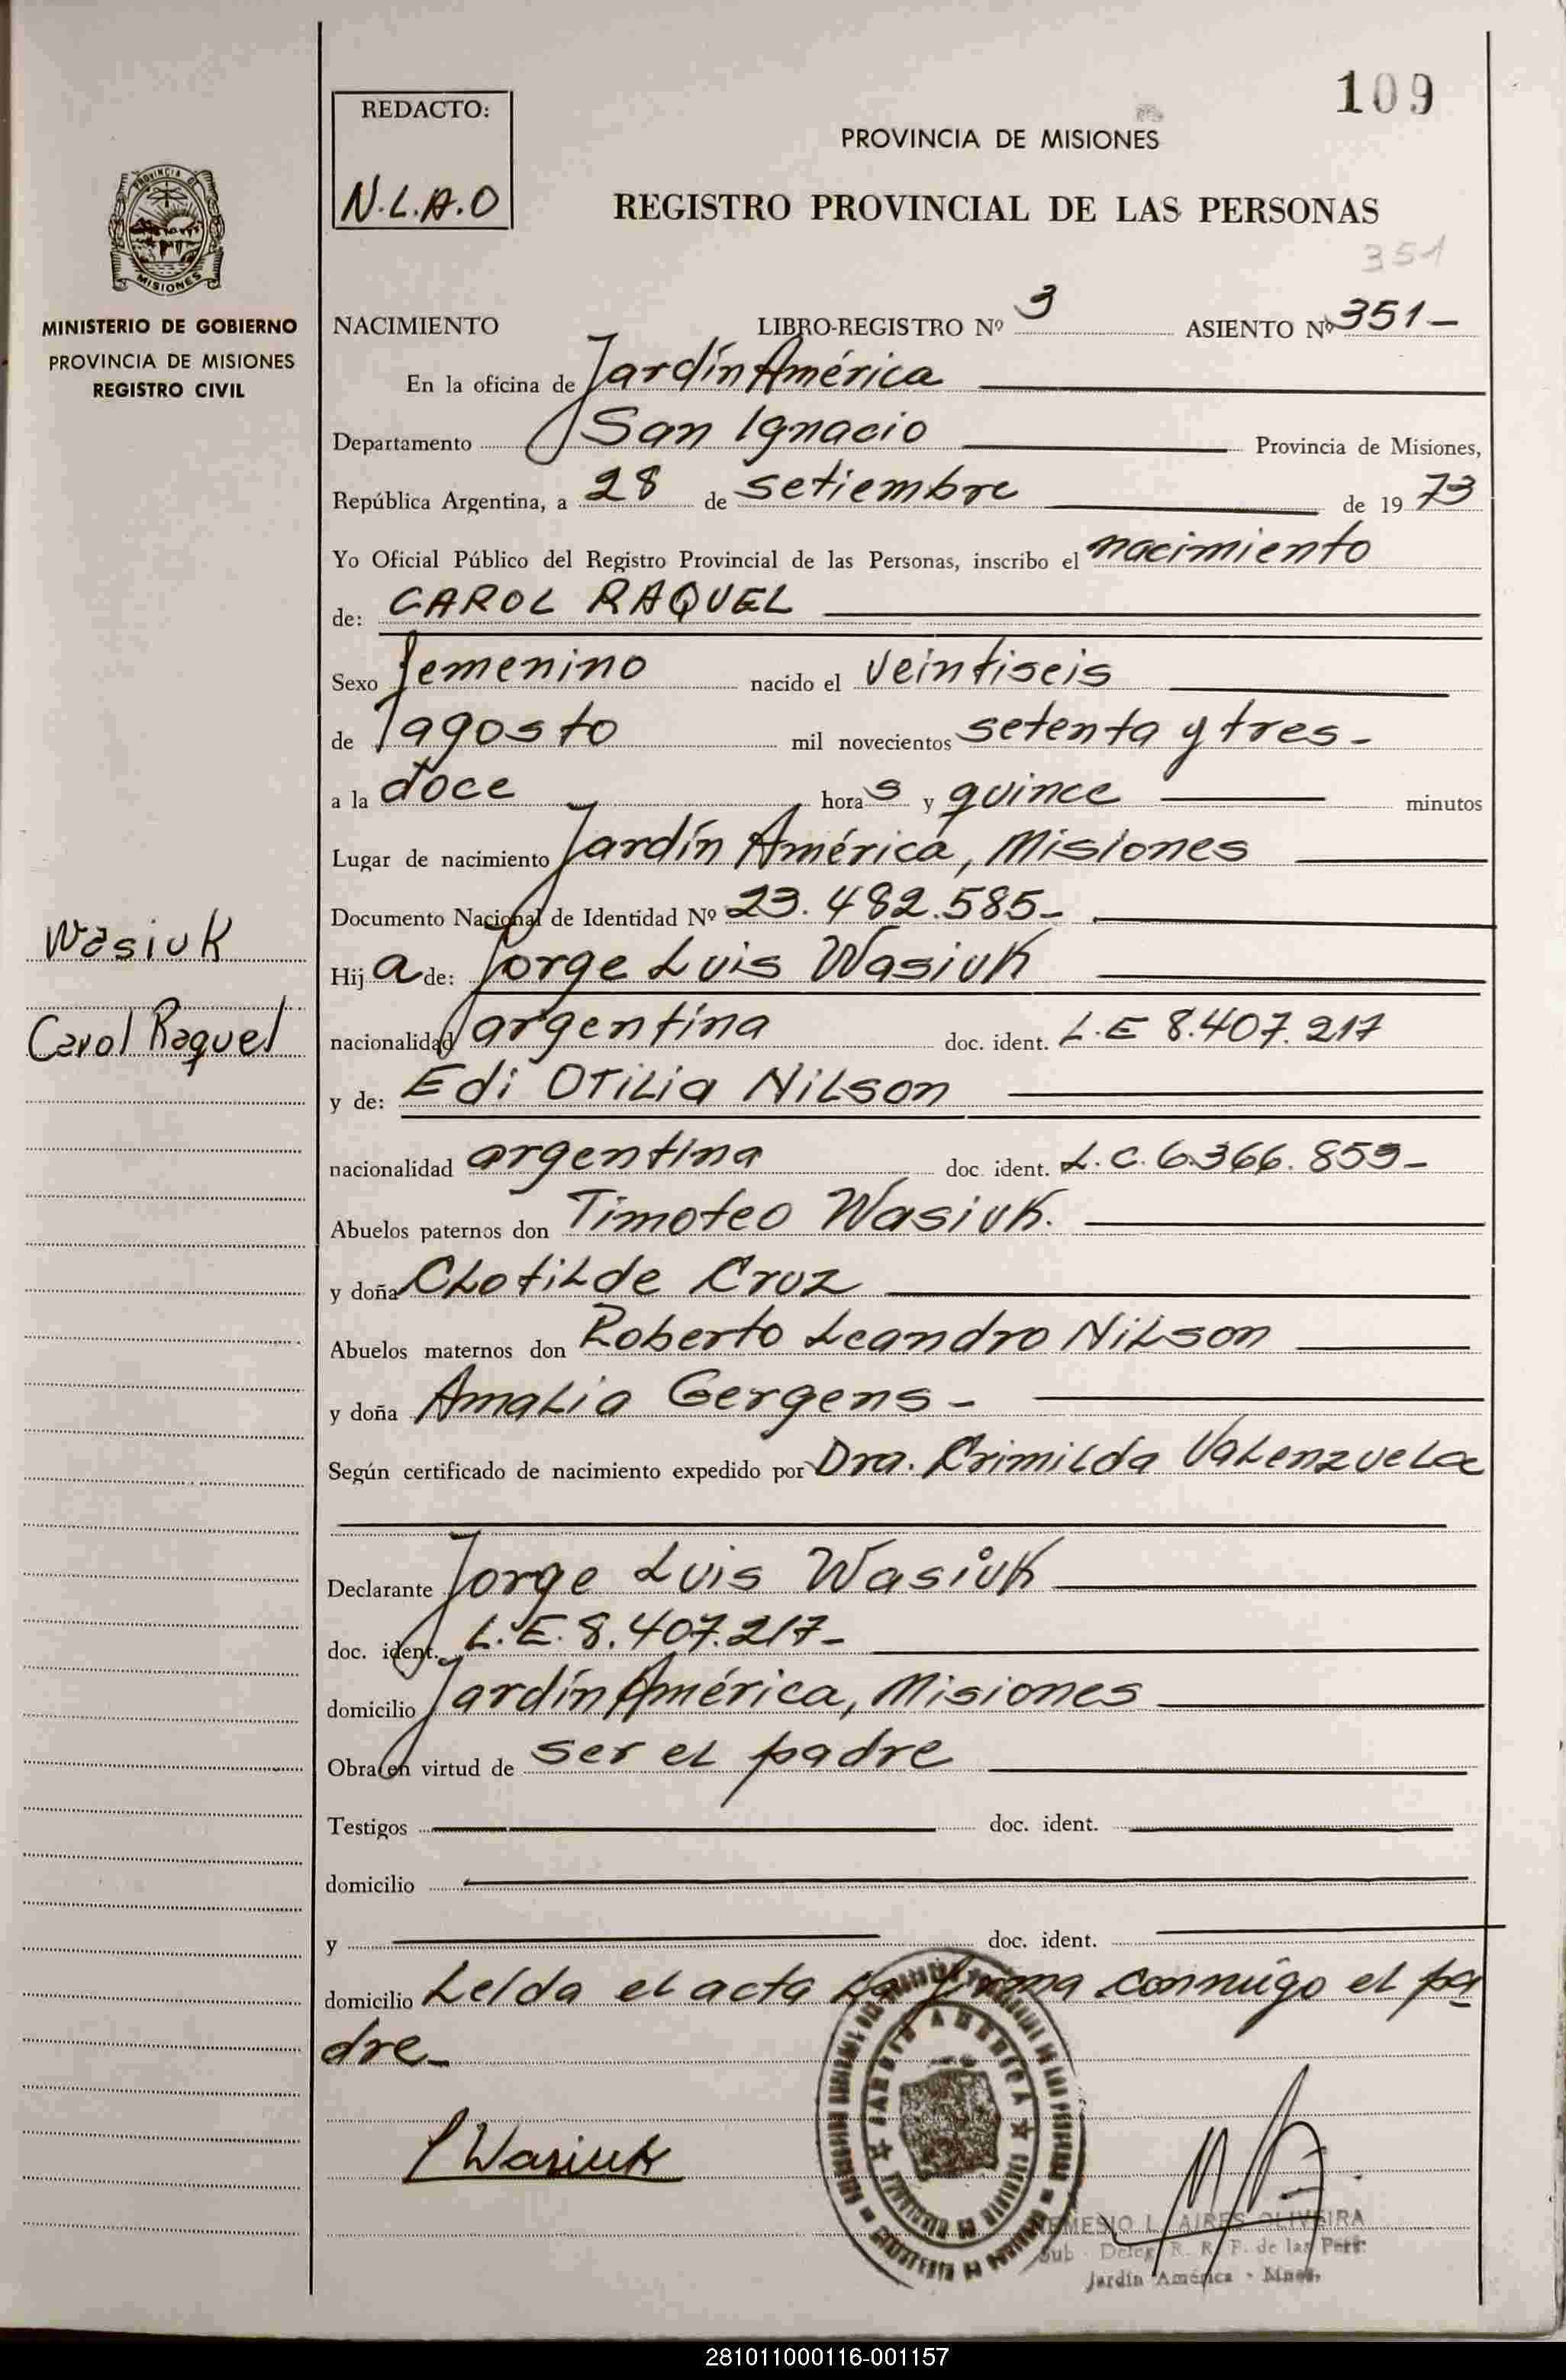 109
REDACTO:
N.L.A.O
PROVINCIA DE MISIONES
REGISTRO PROVINCIAL DE LAS PERSONAS
351
PROVINCIA DE
MISIONES
MINISTERIO DE GOBIERNO
PROVINCIA DE MISIONES
REGISTRO CIVIL
NACIMIENTO LIBRO-REGISTRO Nº 3 ASIENTO Nº 351-
En la oficina de Jardín América
Departamento San Ignacio Provincia de Misiones,
República Argentina, a 28 de setiembre de 19 73
Yo Oficial Público del Registro Provincial de las Personas, inscribo el nacimiento
de: CAROL RAQUEL
Sexo femenino nacido el veintiseis
de agosto mil novecientos setenta y tres-
a la doce horas y quince minutos
Lugar de nacimiento Jardín América, Misiones
Documento Nacional de Identidad Nº 23.482.585-
Wasiuk
Carol Raquel
Hija de: Jorge Luis Wasiuk
nacionalidad argentina doc. ident. L.E 8.407.217
y de: Edi Otilia Nilson
nacionalidad argentina doc. ident. L.C. 6.366.859-
Abuelos paternos don Timoteo Wasiuk.
y doña Clotilde Cruz
Abuelos maternos don Roberto Leandro Nilson
y doña Amalia Gergens-
Según certificado de nacimiento expedido por Dra. Crimilda Valenzuela
Declarante Jorge Luis Wasiuk
doc. ident. L.E. 8.407.217-
domicilio Jardín América, Misiones
Obra en virtud de ser el padre
Testigos doc. ident.
domicilio
y doc. ident.
domicilio Leída el acta la firma conmigo el pa
dre-
JWasiuk
JARDIN AMERICA
NEMESIO L. AIRES OLIVEIRA
Sub - Deleg. R. R. P. de las Pers.
Jardín América - Mnes.
281011000116-001157